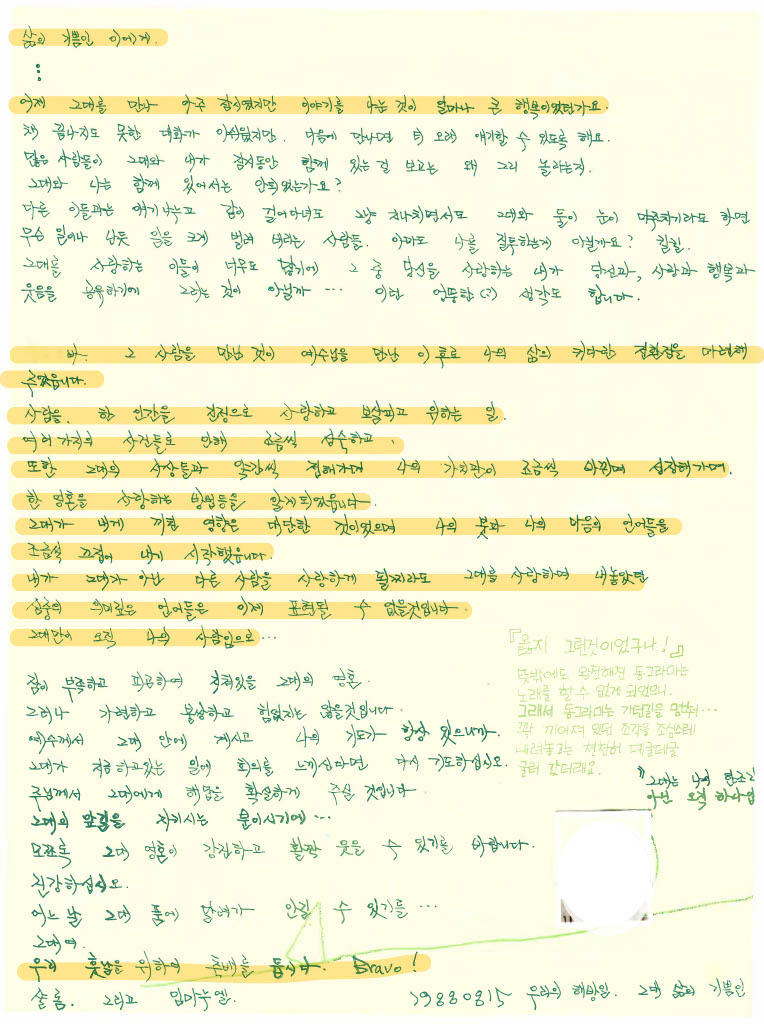 삶의 기쁨인 이에게.
⋮
어제 그대를 만나 아주 잠시였지만 이야기를 나눈 것이 얼마나 큰 행복이었던가요.
채 끝나지도 못한 대화가 아쉬웠지만. 다음에 만나면 더 오래 얘기할 수 있도록 해요.
많은 사람들이 그대와 내가 잠시동안 함께 있는 걸 보고는 왜 그리 놀라는지.
그대와 나는 함께 있어서는 안되었는가요?
다른 이들과는 얘기나누고 같이 걸어다녀도 그냥 지나치면서도 그대와 둘이 눈이 마주치기라도 하면
무슨 일이나 난듯 일을 크게 벌려 버리는 사람들. 아마도 나를 질투하는게 아닐까요? 킬킬.
그대를 사랑하는 이들이 너무도 많기에 그 중 당신을 사랑하는 내가 당신과, 사랑과 행복과
웃음을 공유하기에 그러는 것이 아닐까 … 이런 엉뚱한(?) 생각도 합니다.
그 사람을 만난 것이 예수님을 만난 이후로 나의 삶의 커다란 전환점을 마련해
주었읍니다.
사람을. 한 인간을 진정으로 사랑하고 보살피고 위하는 일.
여러가지의 사건들로 인해 조금씩 성숙하고,
또한 그대의 사상들과 약간씩 접해가며 나의 가치관이 조금씩 바뀌며 성장해가며.
한 영혼을 사랑하는 방법등을 알게되었읍니다.
그대가 내게 끼친 영향은 대단한 것이었으며 나의 붓과 나의 마음의 언어들을
조금씩 끄집어 내게 시작했읍니다.
내가 그대가 아닌 다른 사람을 사랑하게 될찌라도 그대를 사랑하며 내놓았던
심중의 의미깊은 언어들은 이제 표현될 수 없을것입니다.
그대만이 오직 나의 사람임으로…
잠이 부족하고 피곤하여 지쳐있을 그대의 영혼.
그러나 가련하고 불쌍하고 힘없지는 않을것입니다.
예수께서 그대 안에 계시고 나의 기도가 항상 있으니까.
그대가 지금 하고있는 일에 회의를 느끼신다면 다시 기도하십시오.
주님께서 그대에게 해답을 확실하게 주실 것입니다.
그대의 앞길을 지키시는 분이시기에…
모쪼록 그대 영혼이 강건하고 활짝 웃을 수 있기를 바랍니다.
건강하십시오.
어느 날 그대 품에 달려가 안길 수 있기를 …
그대여.
우리 훗날을 위하여 축배를 듭시다. Bravo!
샬롬. 그리고 임마누엘.
『옳지 그런것이었구나!』
뜻밖에도 완전해진 동그라미는
노래를 할 수 없게 되었으니.
그래서 동그라미는 가던길을 멈춰…
꽉 끼어져 있던 조각을 조심스레
내려놓고는 천천히 데굴데굴
굴러 갔더래요.
"그대는 나의 한조각
아닌 오직 하나임
19880815 우리의 해방일. 그대 삶의 기쁨인